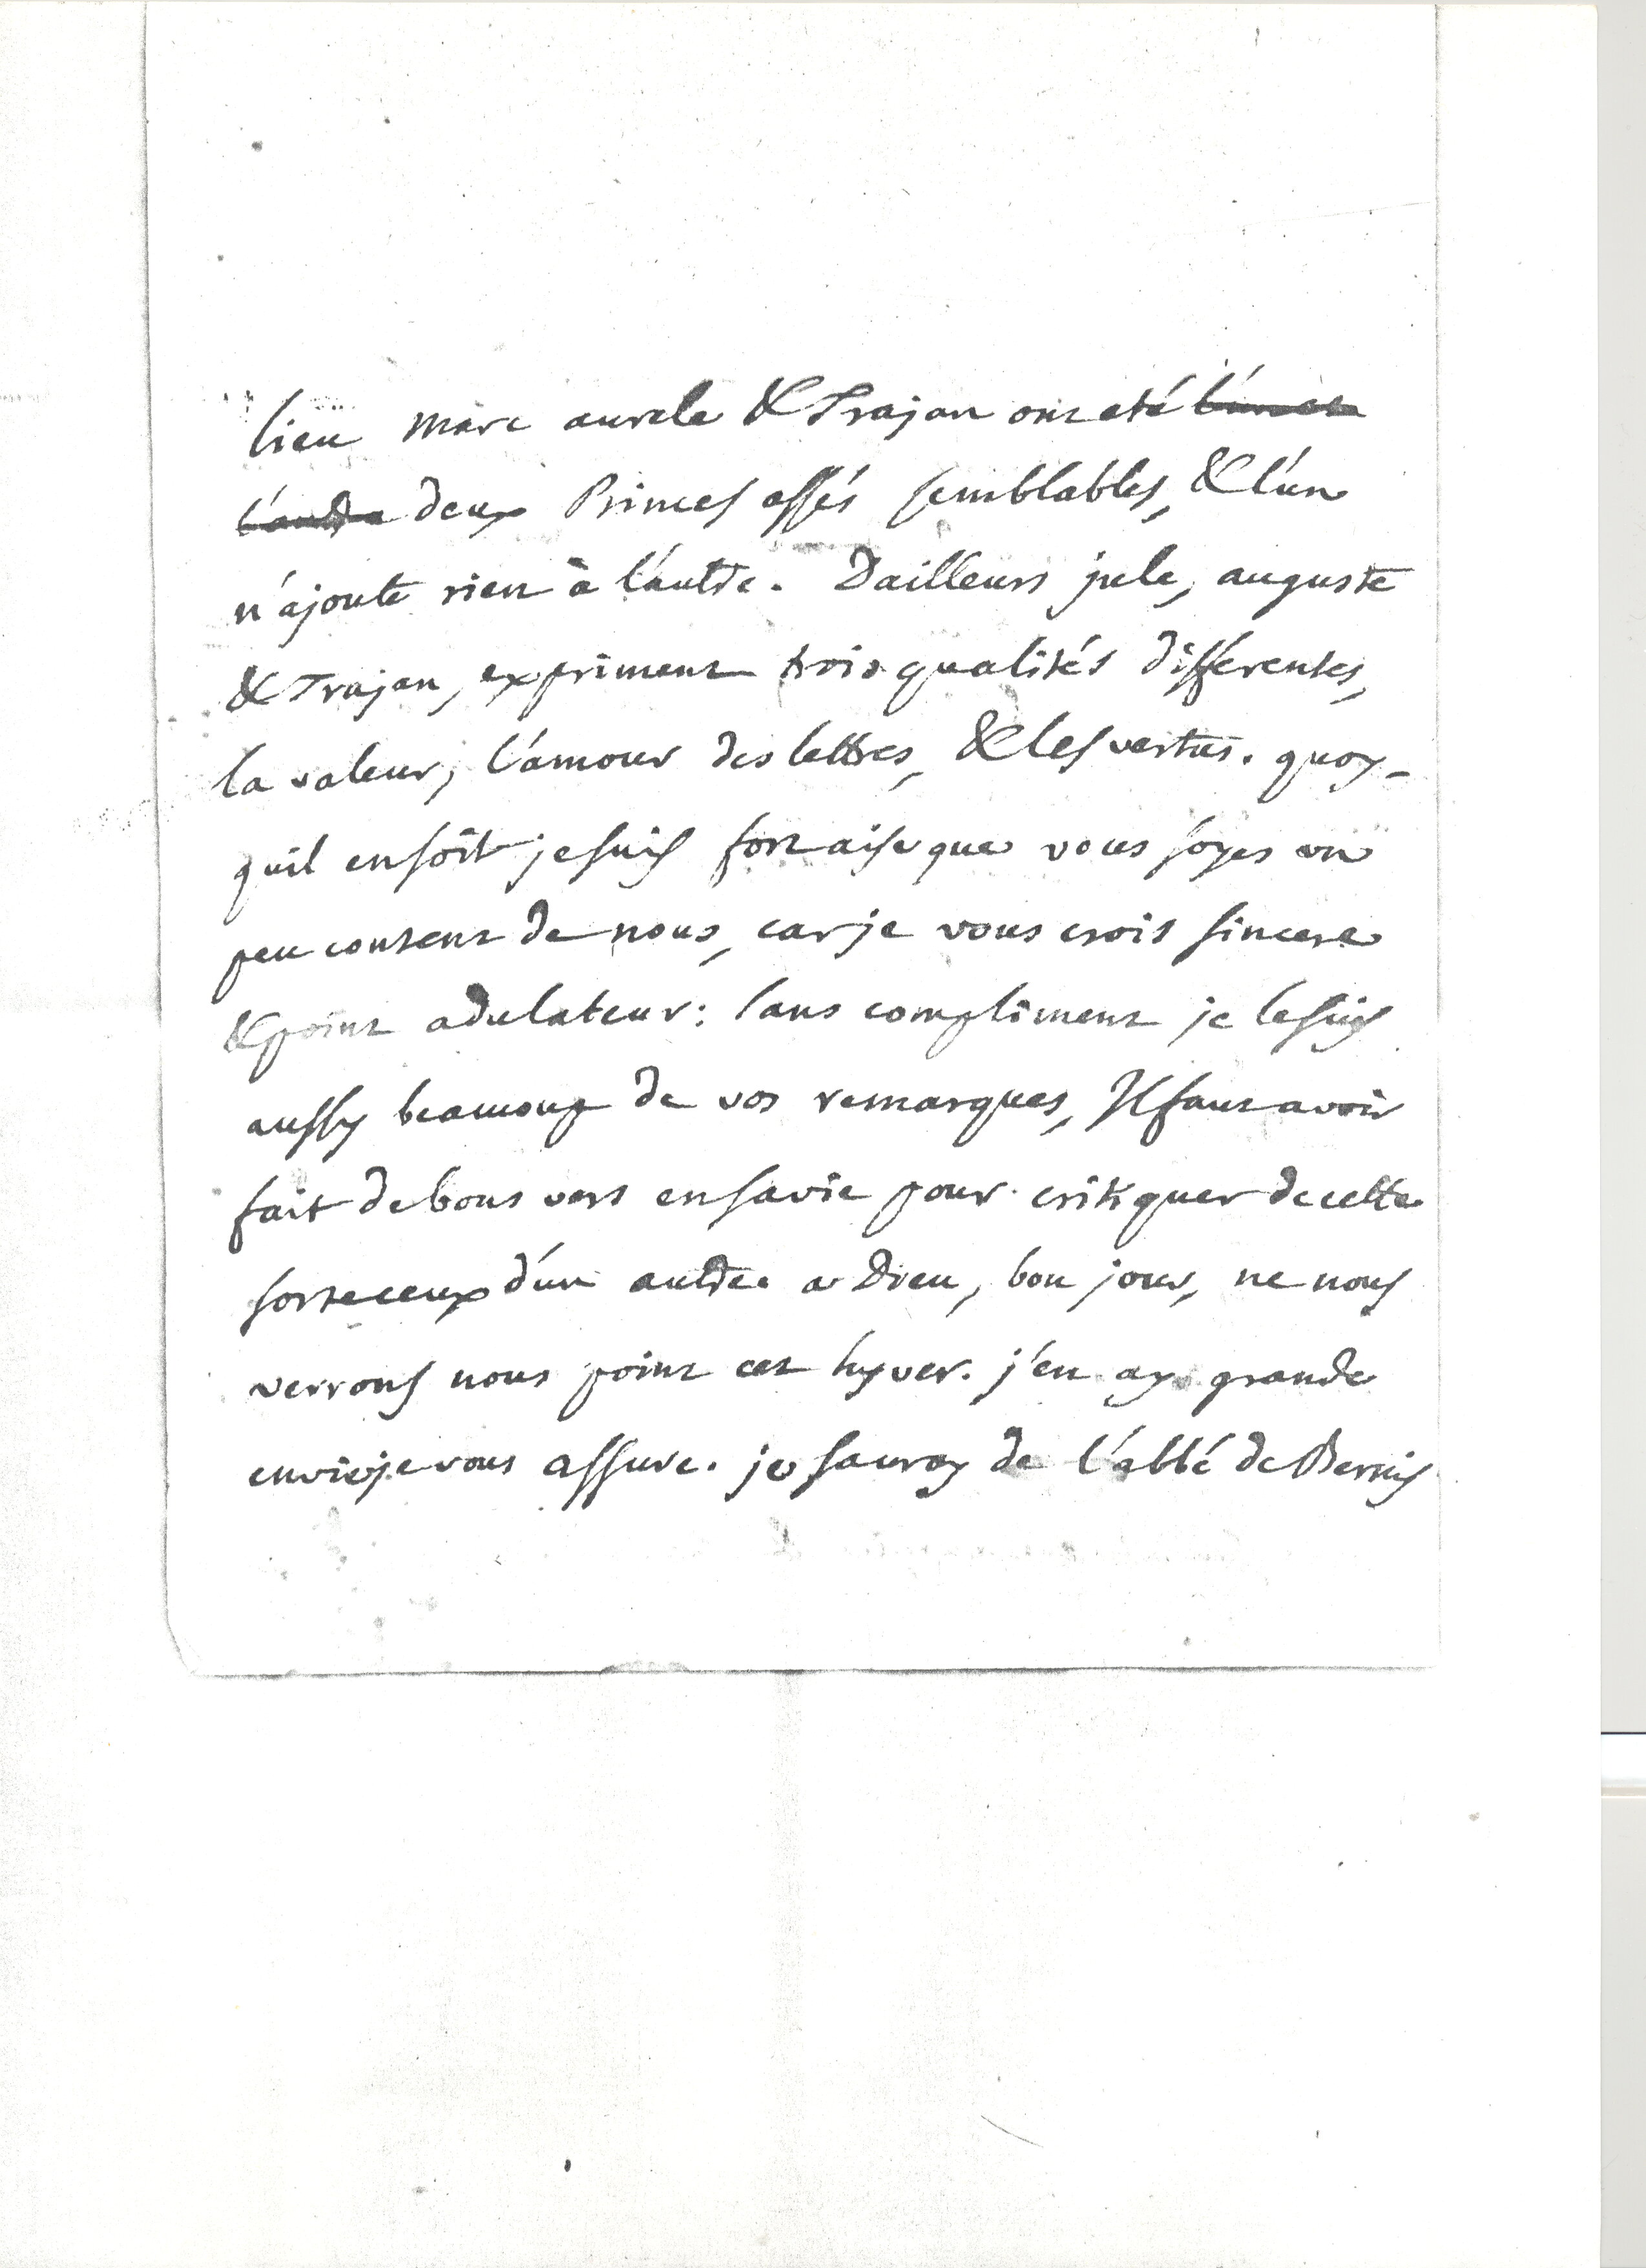 lieu marc aurele & Trajan ont eté l'un et
l'autre deux Princes assés semblables, & l'un
n'ajoute rien à l'autre. Dailleurs jule, auguste
& Trajan, expriment trois qualités differentes,
la valeur, l'amour des lettres, & les vertus. quoy-
quil en soit je suis fort aise que vous soyes un
peu content de nous, car je vous crois sincere
& point adulateur: sans compliment je le suis
aussy beaucoup de vos remarques, Il faut avoir
fait de bons vers en sa vie pour critiquer de cette
sorte ceux d'un autre. a Dieu, bon jour, ne nous
verrons nous point cet hyver. j'en ay grande
envie je vous assure. je sauray de l'abbé de Bernis